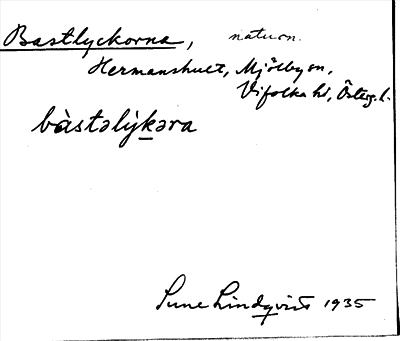 Bastlyckorna, naturn.
Hermanshult, Mjölby sn,
Vifolka hd, Österg. l.
bàstəlỳk̲əra
Sune Lindqvist 1935